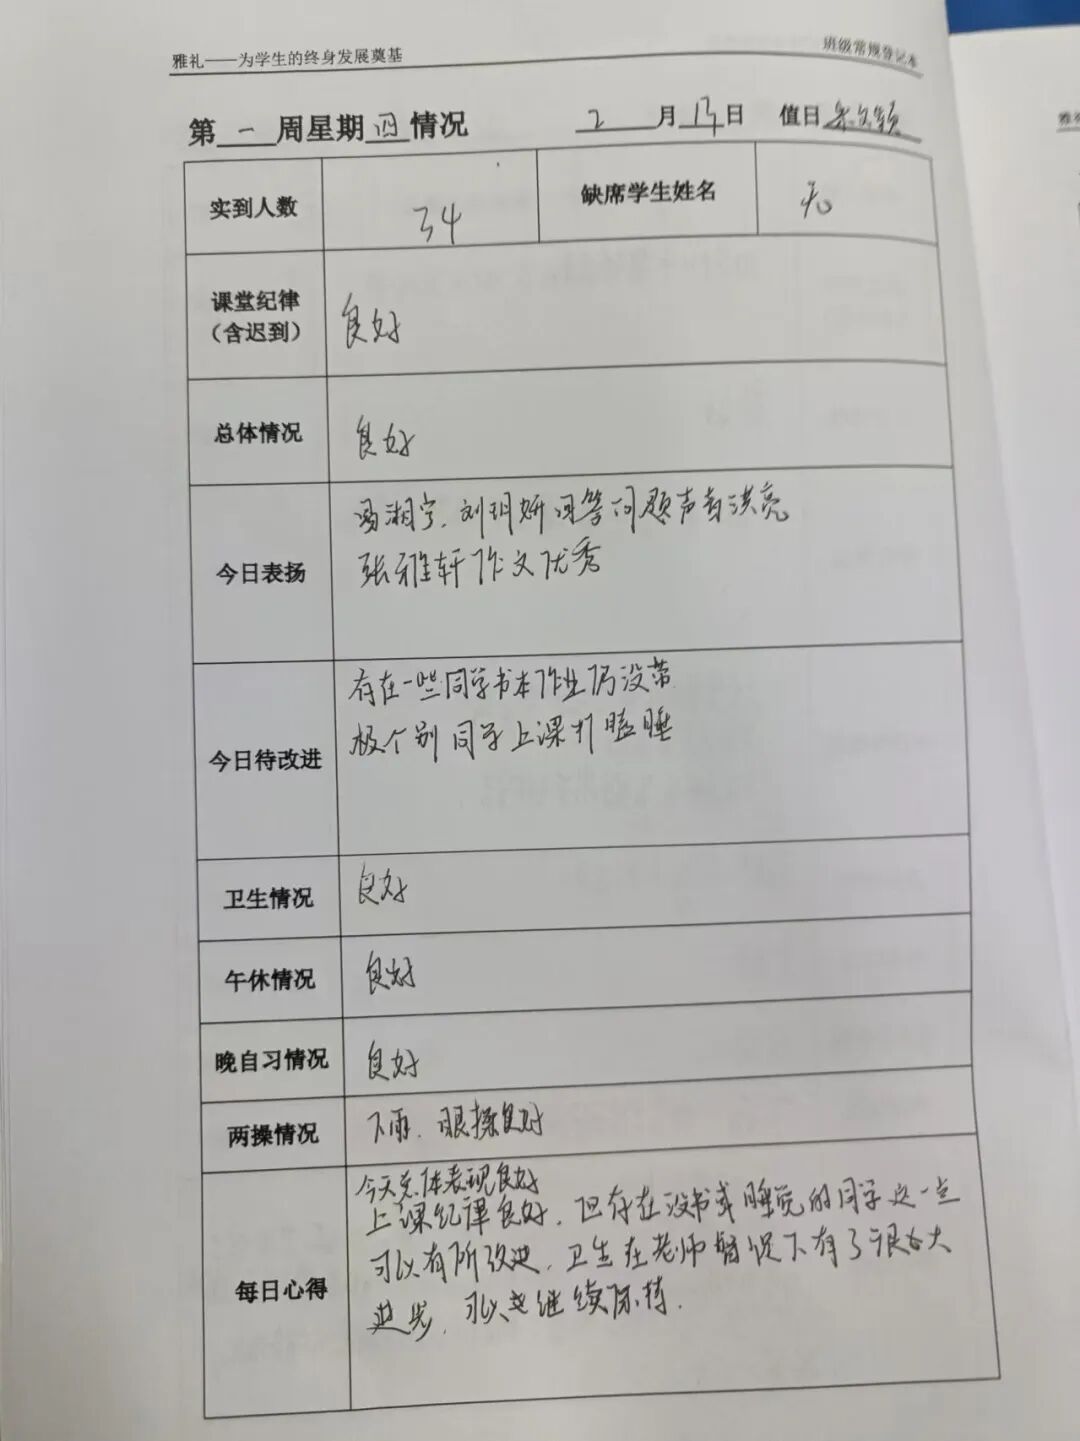 雅礼——为学生的终身发展奠基
班级常规登记本
第一周星期四情况 2月13日 值日
实到人数 34 缺席学生姓名 无
课堂纪律
(含迟到)
良好
总体情况 良好
今日表扬
冯湘宁、刘玥妍回答问题声音洪亮
张雅轩作文优秀
今日待改进
存在一些同学书本作业仍没带
极个别同学上课打瞌睡
卫生情况 良好
午休情况 良好
晚自习情况 良好
两操情况 下雨、眼操良好
每日心得
今天总体表现良好
上课纪律良好、但存在没书或睡觉的同学这一点
可以有所改进、卫生在老师督促下有了很大
进步、可以继续保持.